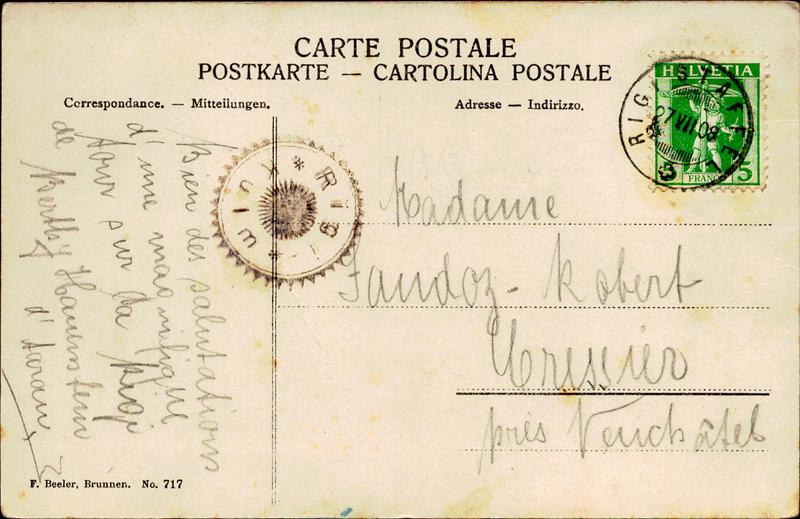 CARTE POSTALE
POSTKARTE — CARTOLINA POSTALE
Correspondance. — Mitteilungen.
Adresse — Indirizzo.
HELVETIA
FRANCO 5
RIGI STAFFEL
27 VII 08
RIGI
Bien des salutations
d'une magnifique
tour sur la Rigi
de Berthy
Madame
Sandoz - Robert
Cressier
près Neuchâtel
F. Beeler, Brunnen. No. 717